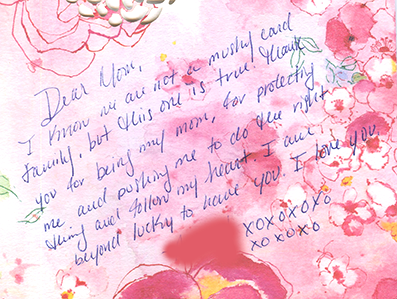 Dear Mom,
I know we are not a mushy card
family, but this one is true! Thank
you for being my mom, for protecting
me and pushing me to do the right
thing and follow my heart. I am
beyond luckry to have you. I love you.
XOXOXOXO
XOXOXO